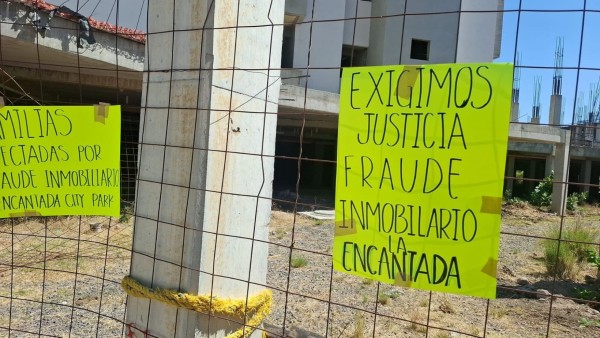 MILIAS
ECTADAS POR
AUDE INMOBILIARIO
NCANTADA CITY PARK
EXIGIMOS
JUSTICIA
FRAUDE
INMOBILARIO
LA
ENCANTADA